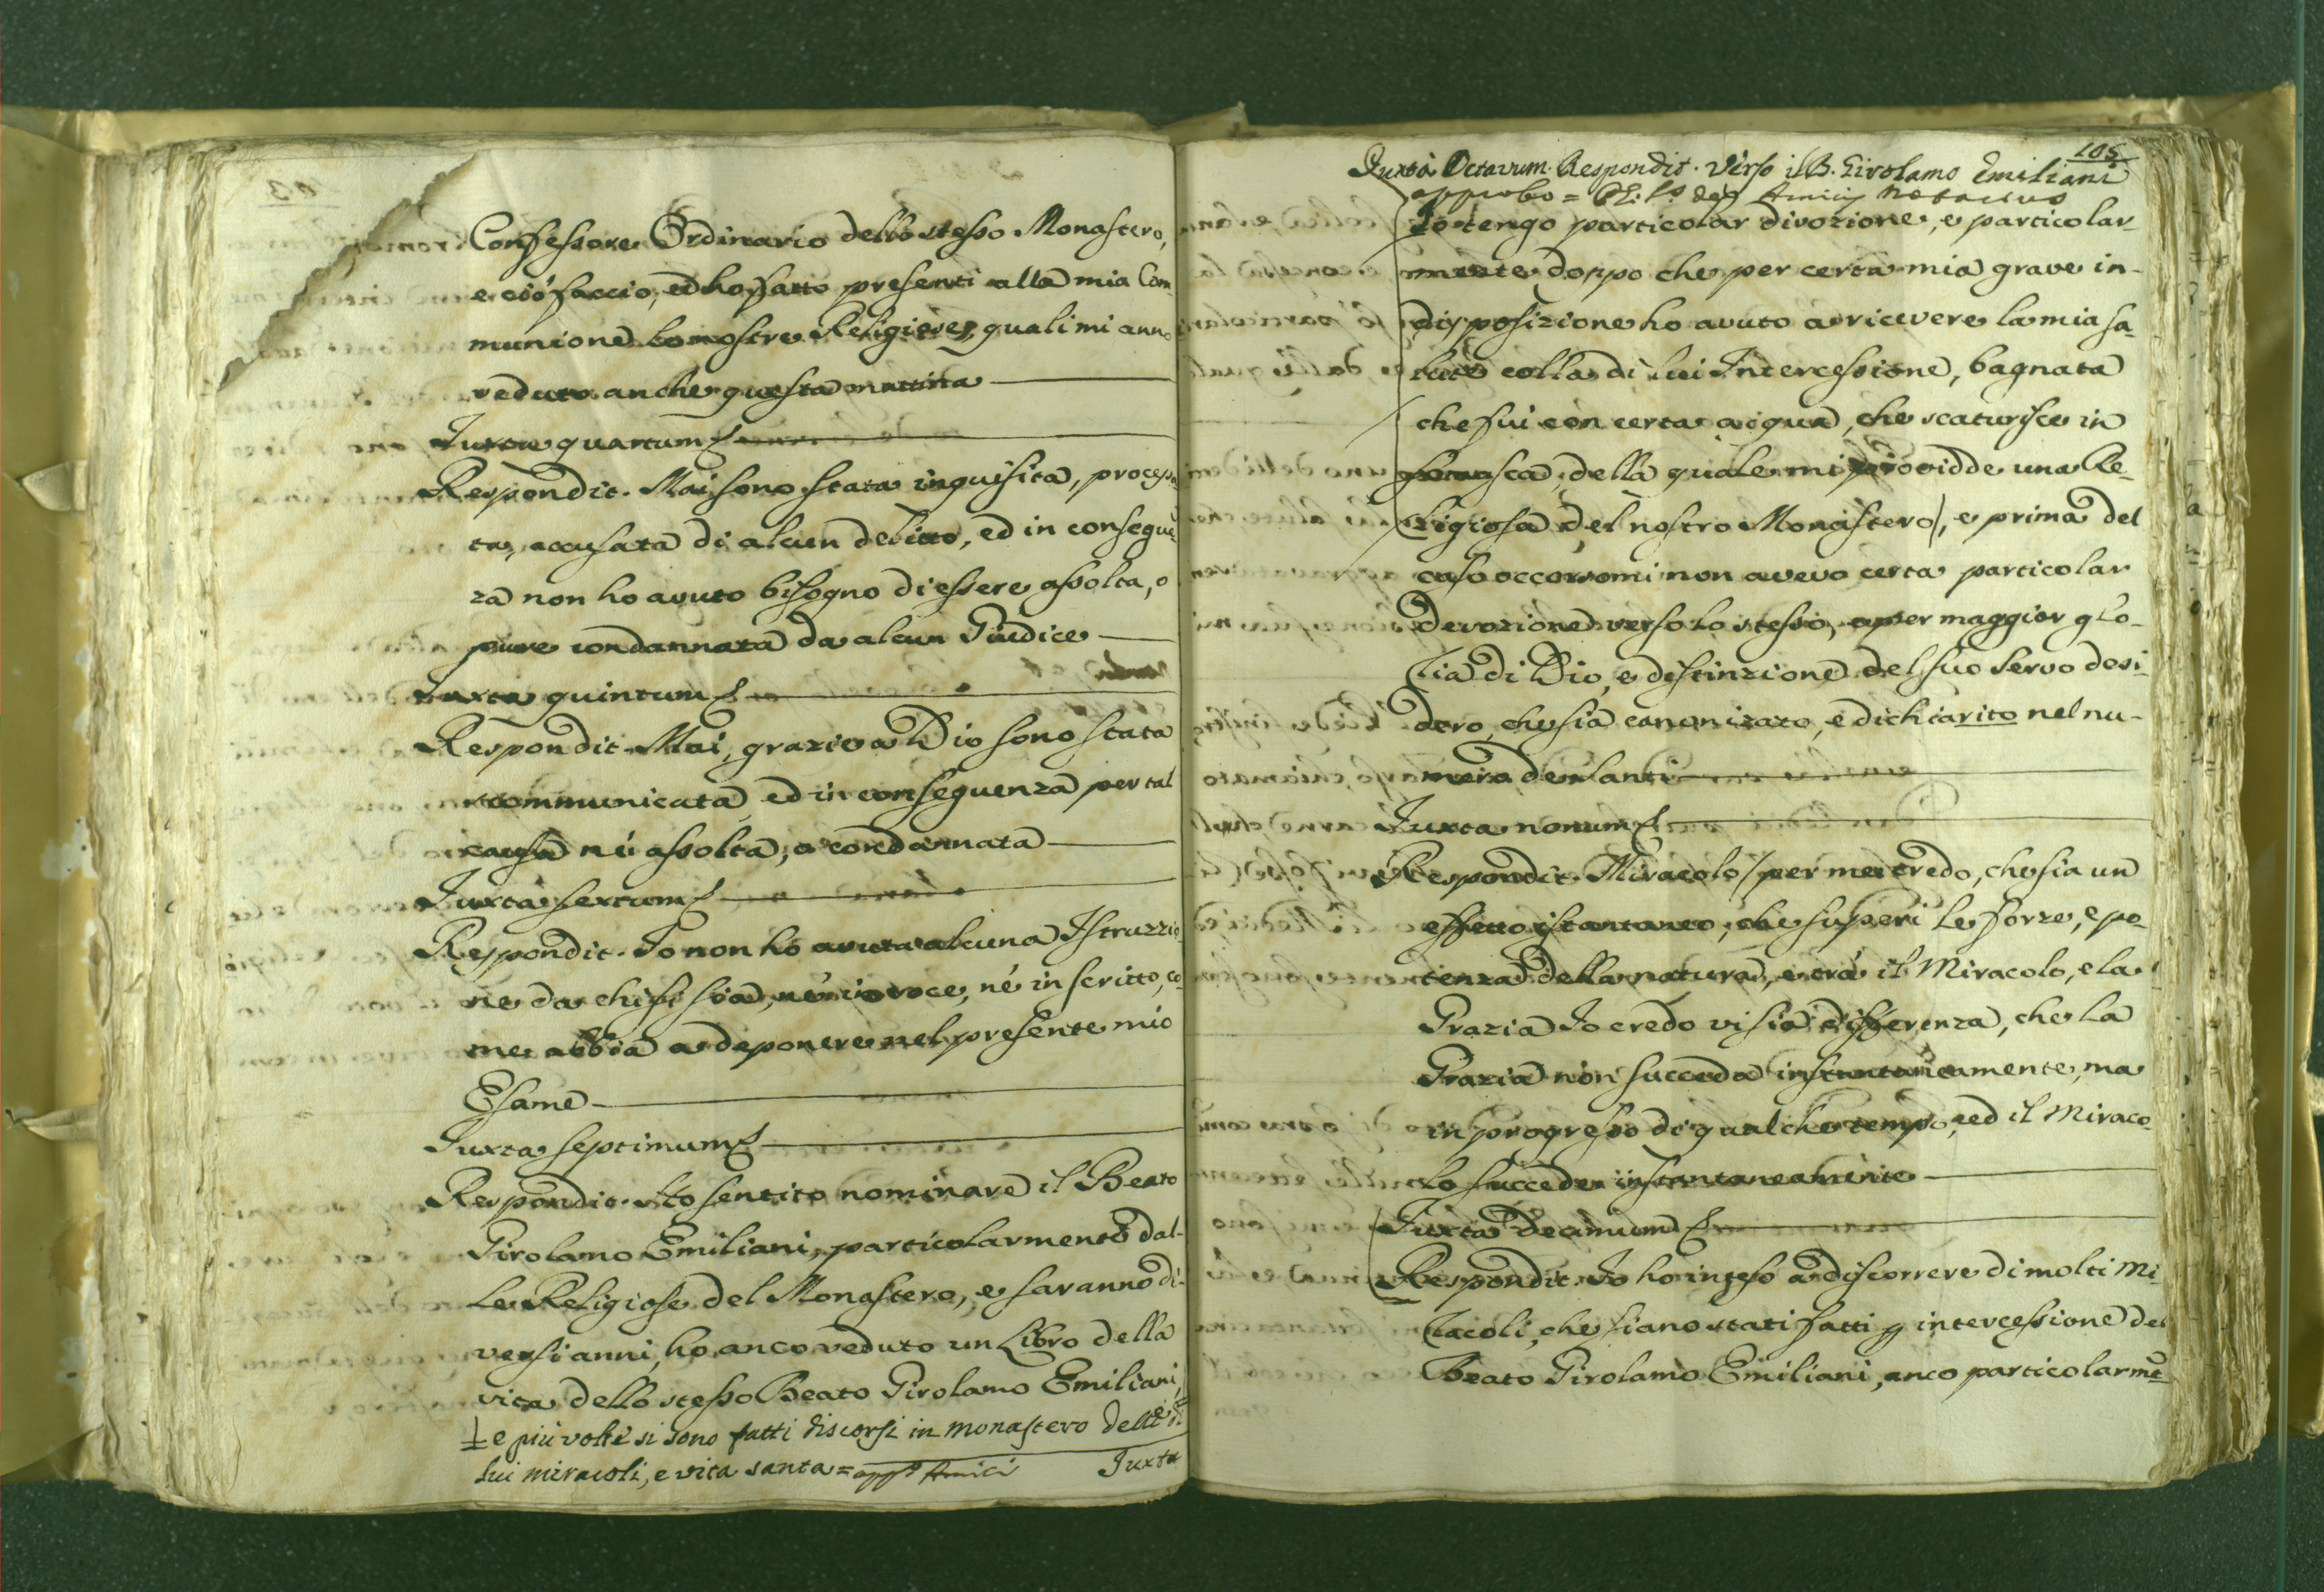 Confessore Ordinario dello stesso Monastero,
e ciò faccio, ed ho fatto presenti alla mia Com-
munione le nostre Religiose, quali mi anno
veduto anche questa mattina
Juxta quartum
Respondit. Mai sono stata inquisita, processa
ta, accusata di alcun delitto, ed in conseguē
za non ho avuto bisogno di essere assolta, o
pure condannata da alcun Giudice
Juxta quintum
Respondit. Mai, grazie a Dio sono stata
scommunicata, ed in conseguenza per tal
causa né assolta, o condannata
Juxta sextum
Respondit. Io non ho avuta alcuna Istruzzio
ne da chi si sia, né in voce, né in scritto, co-
me abbia a deponere nel presente mio
Esame
Juxta septimum
Respondit. Ho sentito nominare il Beato
Girolamo Emiliani, particolarmente dal-
le Religiose del Monastero, e saranno di-
versi anni, ho anco veduto un Libro della
vita dello stesso Beato Girolamo Emiliani,
e più volte si sono fatti discorsi in monastero delli di
lui miracoli, e vita santa = Amici
Juxta
105
Juxta Octavum. Respondit. Verso il B. Girolamo Emiliani
approbo = de Amicis Notarius
Io tengo particolar divozione, e particolar-
mente doppo che per certa mia grave in-
disposizione ho avuto a ricevere la mia sa-
lute colla di lui Intercessione, bagnata
che fui con certa acqua, che scaturisce in
Somasca, della quale mi providde una Re-
ligiosa del nostro Monastero, e prima del
caso occorsomi non avevo certa particolar
devozione verso lo stesso, e per maggior glo-
ria di Dio, e distinzione del suo Servo desi-
dero, che sia canonizato, e dichiarito nel nu-
mero de Santi
Juxta nonum
Respondit. Miracolo per me credo, che sia un
effetto istantaneo, che superi le forze, e po-
tenza della natura, e trá il Miracolo, e la
Grazia Io credo vi sia differenza, che la
Grazia non succeda instantaneamente, ma
in progresso di qualche tempo, ed il Miraco-
lo succede instantaneamente
Juxta decimum
Respondit. Io ho inteso a discorrere di molti Mi-
racoli, che siano stati fatti ꝑ intercessione del
Beato Girolamo Emiliani, anco particolarmē-